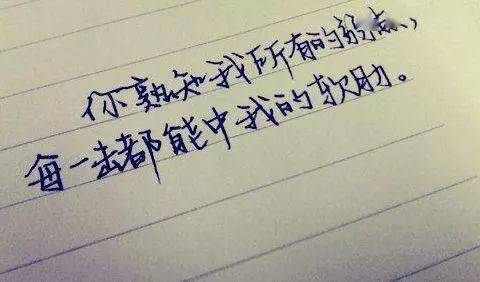 你熟知我所有的弱点，
每一击都能中我的软肋。